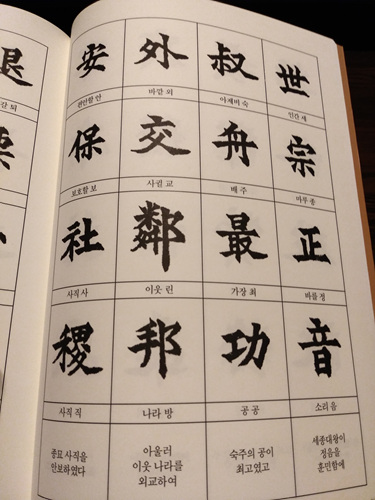 世
인간 세
宗
마루 종
正
바를 정
音
소리 음
세종대왕이
정음을
훈민함에
叔
아재비 숙
舟
배 주
最
가장 최
功
공 공
숙주의 공이
최고였고
外
바깥 외
交
사귈 교
鄰
이웃 린
邦
나라 방
아울러
이웃 나라를
외교하여
安
편안할 안
保
보호할 보
社
사직 사
稷
사직 직
종묘 사직을
안보하였다